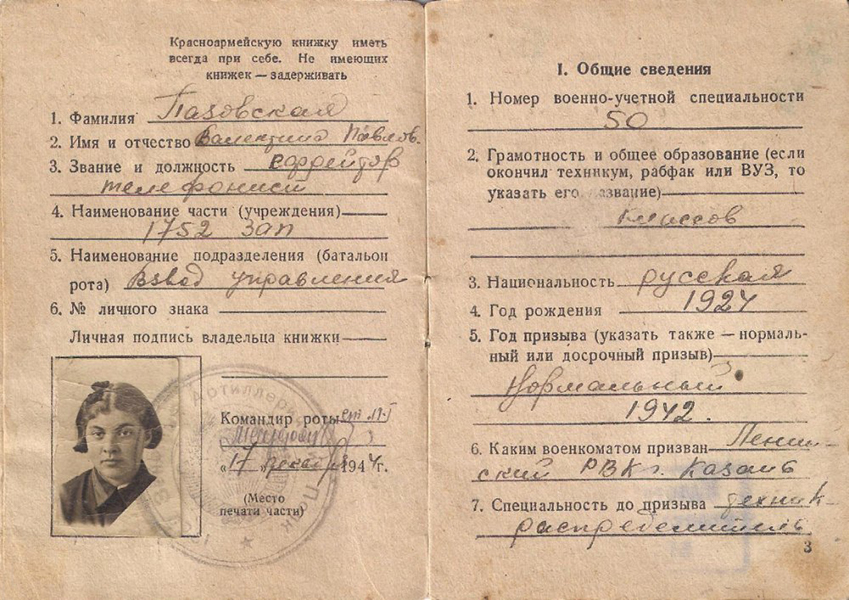 Красноармейскую книжку иметь
всегда при себе. Не имеющих
книжек — задерживать
1. Фамилия Пазовская
2. Имя и отчество Валентина Павлов.
3. Звание и должность ефрейтор
телефонист
4. Наименование части (учреждения)
1752 зап
5. Наименование подразделения (батальон
рота) Взвод управления
6. № личного знака
Личная подпись владельца книжки
Командир роты
«17» декабря 1944 г.
(Место
печати части)
Артиллер
I. Общие сведения
1. Номер военно-учетной специальности
50
2. Грамотность и общее образование (если
окончил техникум, рабфак или ВУЗ, то
указать его название)
классов
3. Национальность русская
4. Год рождения 1924
5. Год призыва (указать также — нормаль-
ный или досрочный призыв)
Нормальный
1942.
6. Каким военкоматом призван Ленин-
ский РВК г. Казань
7. Специальность до призыва техник-
распределитель
3